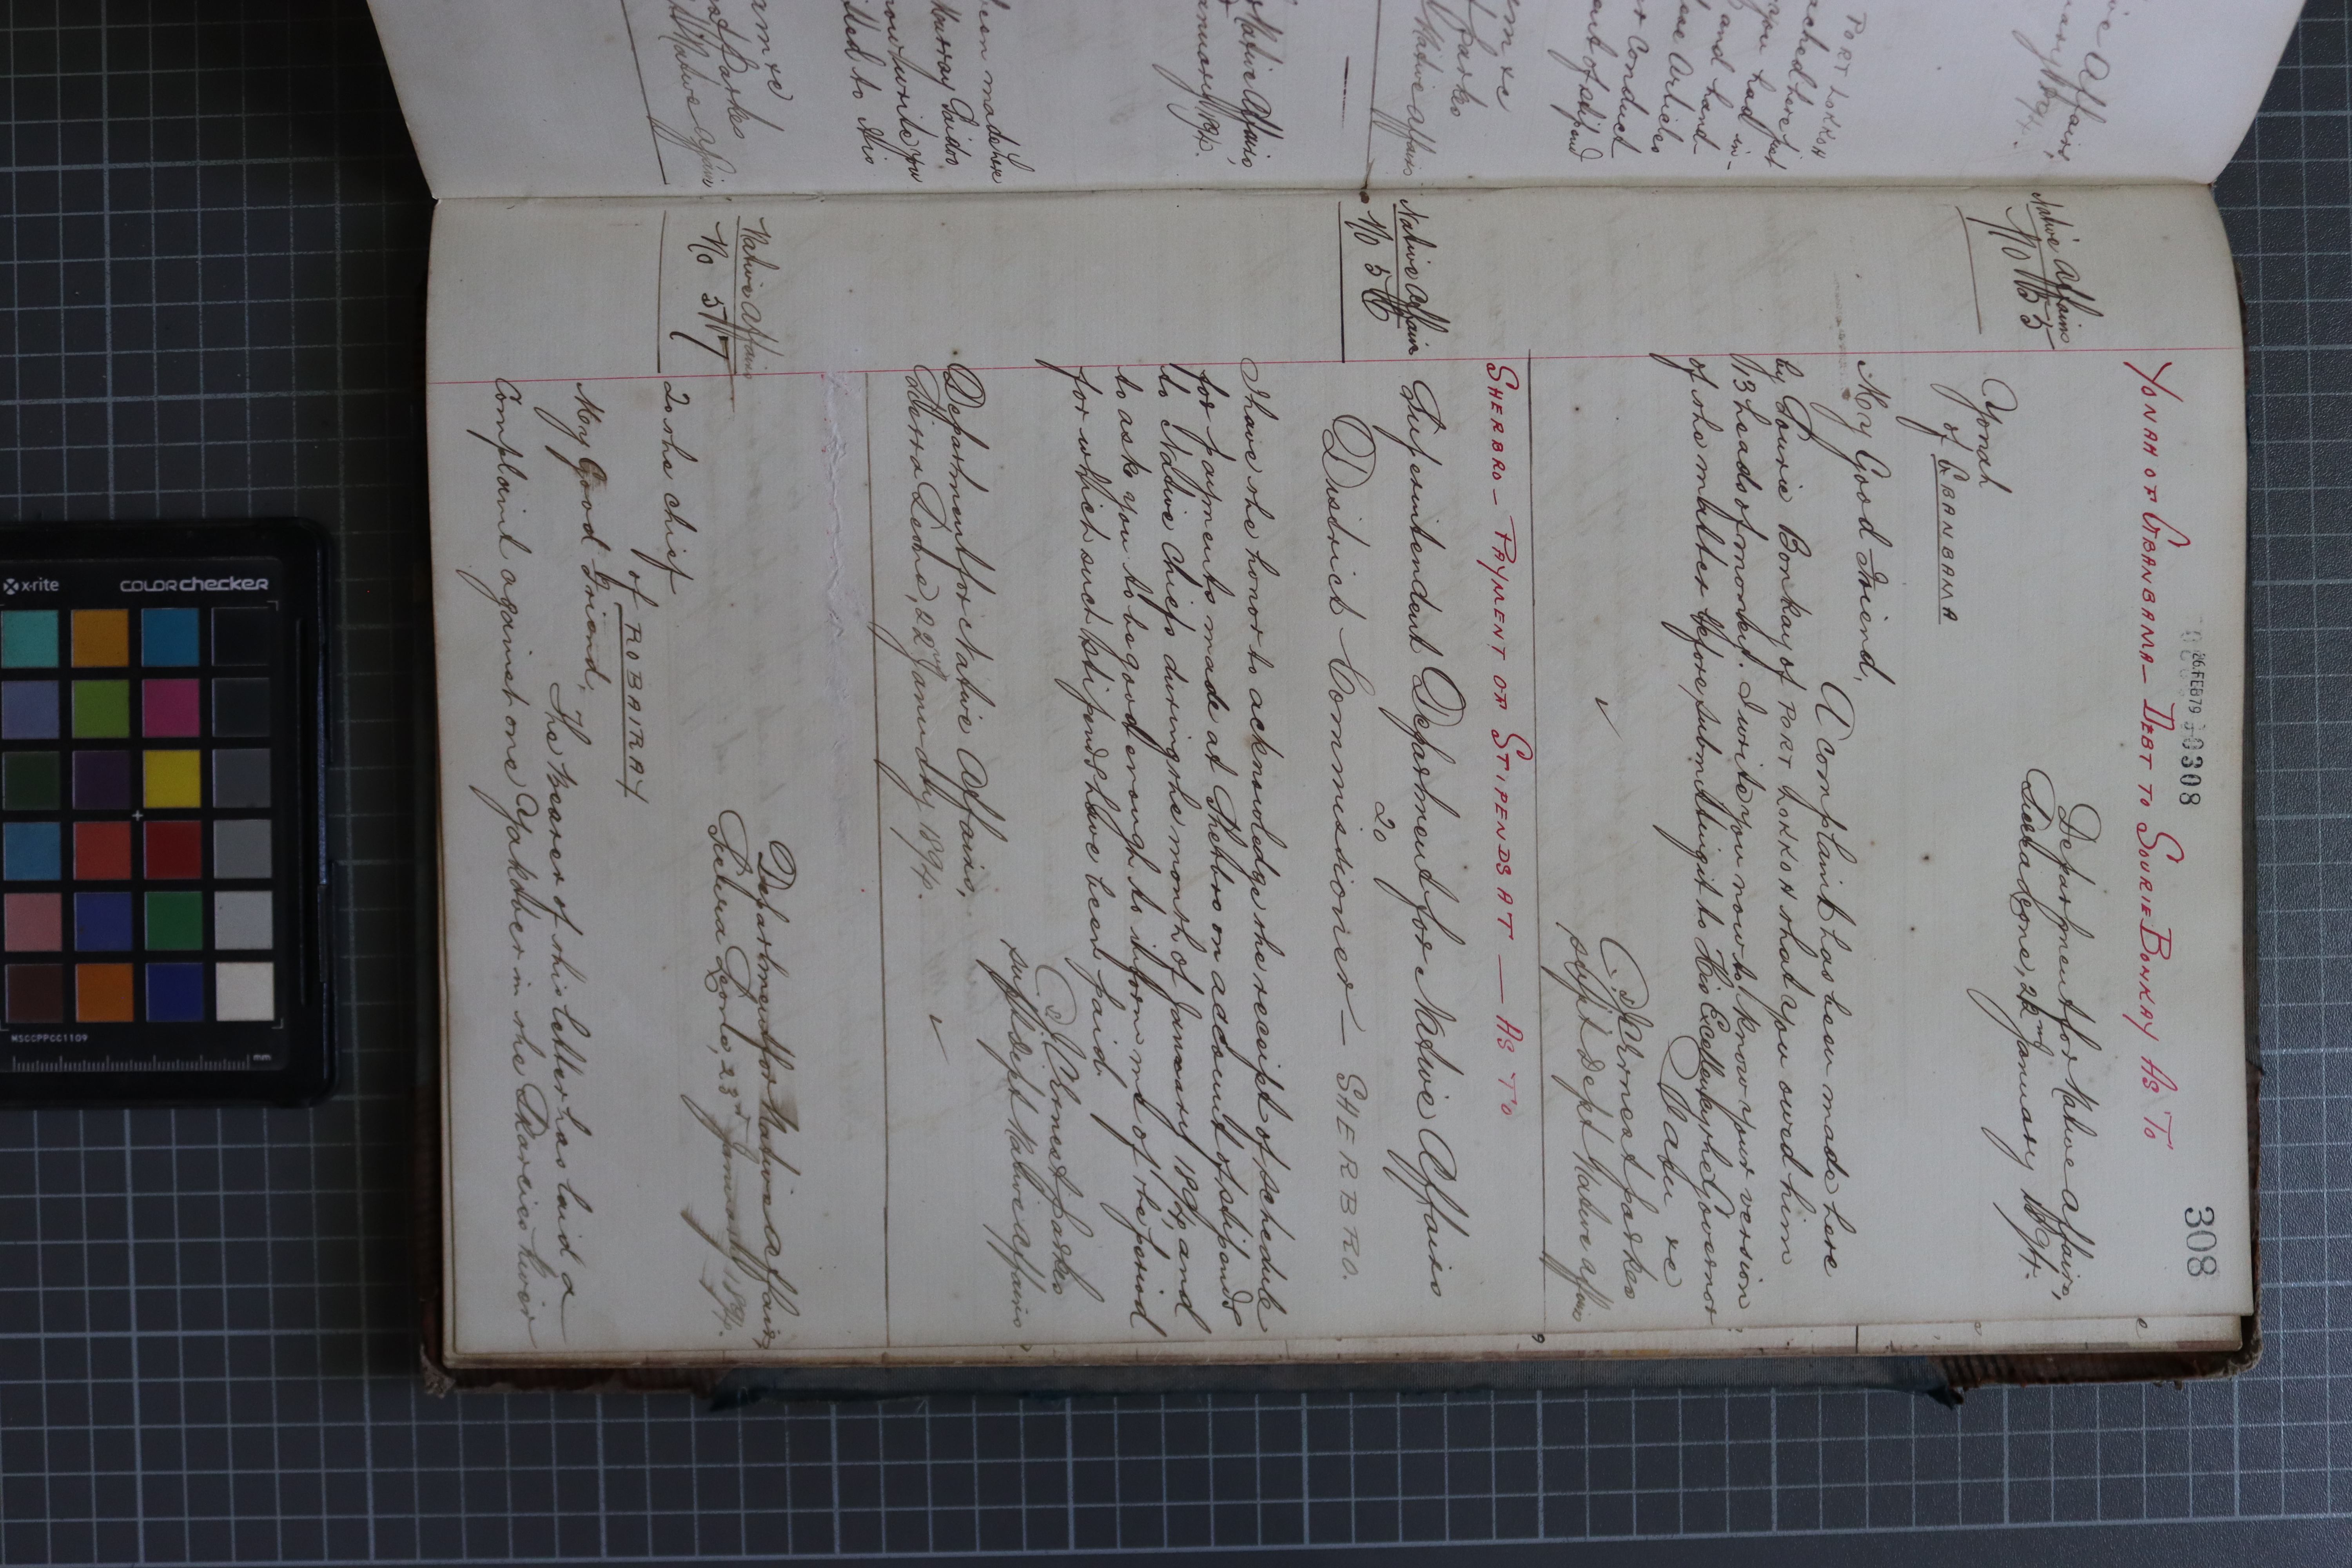 26.FEB79
0308
308
YONAH OF GBANBANA – DEBT TO SOURIE BONKAY AS TO
Native Affairs
No 55
Department for Native Affairs,
Sierra Leone, 22nd January 1894.
Yonah
of GBANBANA
My Good Friend,
A complaint has been made here
by Sourie Bonkay of PORT LOKKOH that you owed him
13 heads of money. I write you now to know your version
of the matter before submitting it to His Excellency the Governor
I am &c
J. C. Ernest Parkes
Supt Dept Native Affairs
SHERBRO – PAYMENT OF STIPENDS AT — AS TO
Native Affairs
No 56
Superintendent Department for Native Affairs
To
District Commissioner – SHERBRO.
I have the honor to acknowledge the receipt of schedule
for payments made at Sherbro on account of stipends
to Native Chiefs during the month of January 1894, and
to ask you to be good enough to inform me of the period
for which such stipends have been paid.
J. C. Ernest Parkes
Supt Dept Native Affairs
Department for Native Affairs,
Sierra Leone, 22nd January 1894.
Native Affairs
No 57
Department for Native Affairs,
Sierra Leone, 23rd January 1894.
To the Chief
of ROBAIRAY
My Good Friend,
The bearer of this letter has laid a
Complaint against one Yankober in the Scarcies River
x-rite
COLORchecker
MSCCPPCC1109
mm